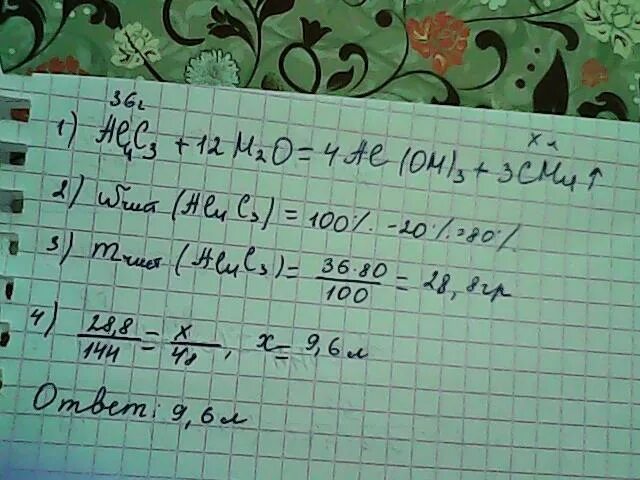 36г
х л
1) Al4C3 + 12H2O = 4Al(OH)3 + 3CH4↑
2) ωчист (Al4C3) = 100% - 20% = 80%
3) mчист (Al4C3) = 36·80/100 = 28,8гр
4) 28,8/144 = x/48, x = 9,6л
Ответ: 9,6л